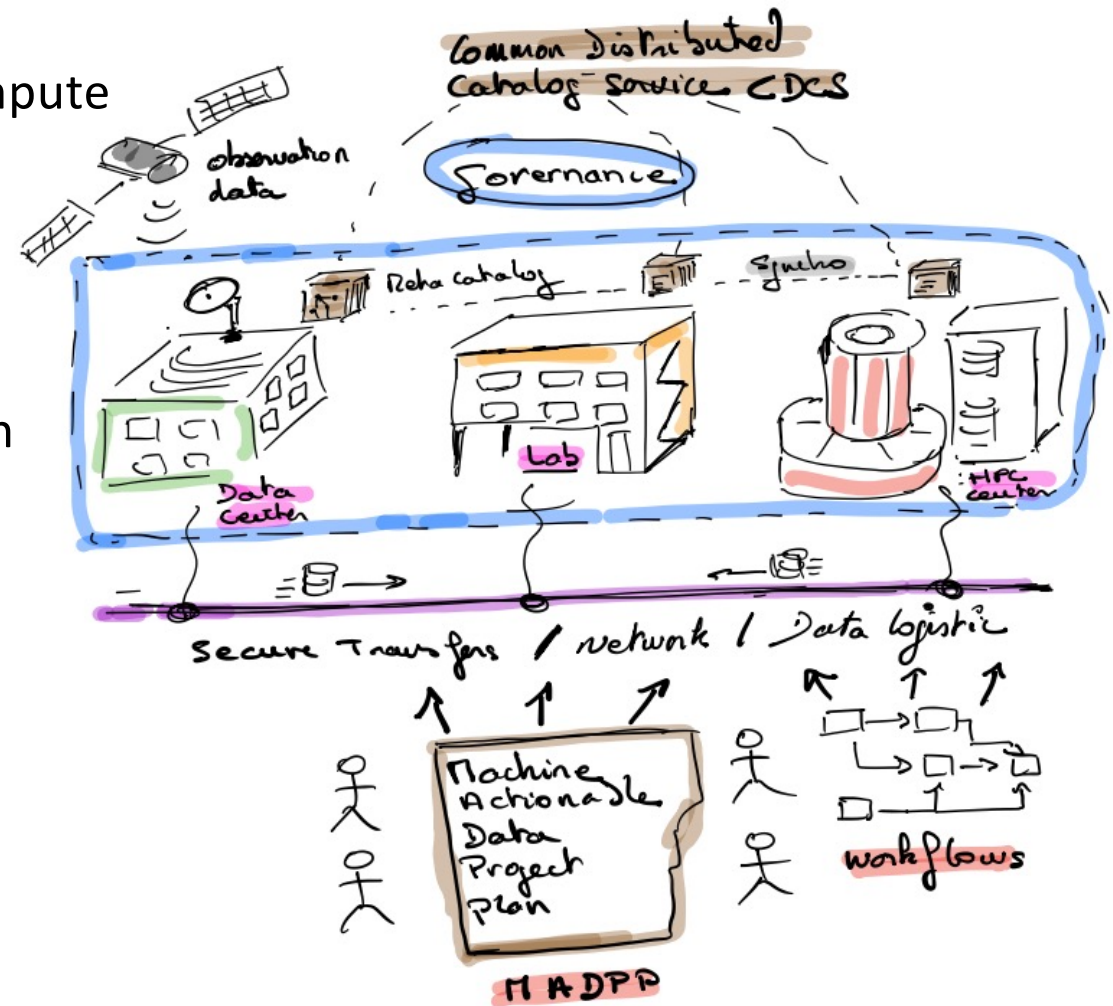 Common Distributed
Catalog Service CDCS
mpute
observation
data
Governance
Meta Catalog
Synchro
n
Lab
Data
Center
HPC
center
Secure Transfers / network / Data logistic
Machine
Actionable
Data
Project
Plan
workflows
MADPP